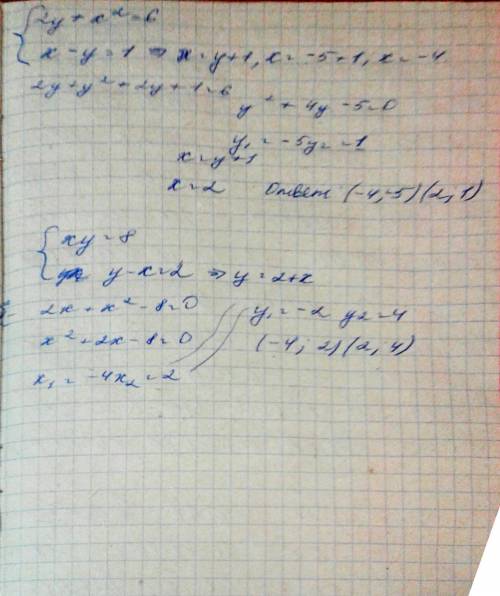 2y + x² = 6
x - y = 1 ⇒ x = y+1, x = -5+1, x = -4
2y + y² + 2y + 1 = 6
y² + 4y - 5 = 0
y₁ = -5 y₂ = 1
x = y+1
x = 2 Ответ (-4,-5) (2,1)
xy = 8
y - x = 2 ⇒ y = 2+x
2x + x² - 8 = 0 y₁ = -2 y₂ = 4
x² + 2x - 8 = 0 (-4; -2) (2, 4)
x₁ = -4 x₂ = 2